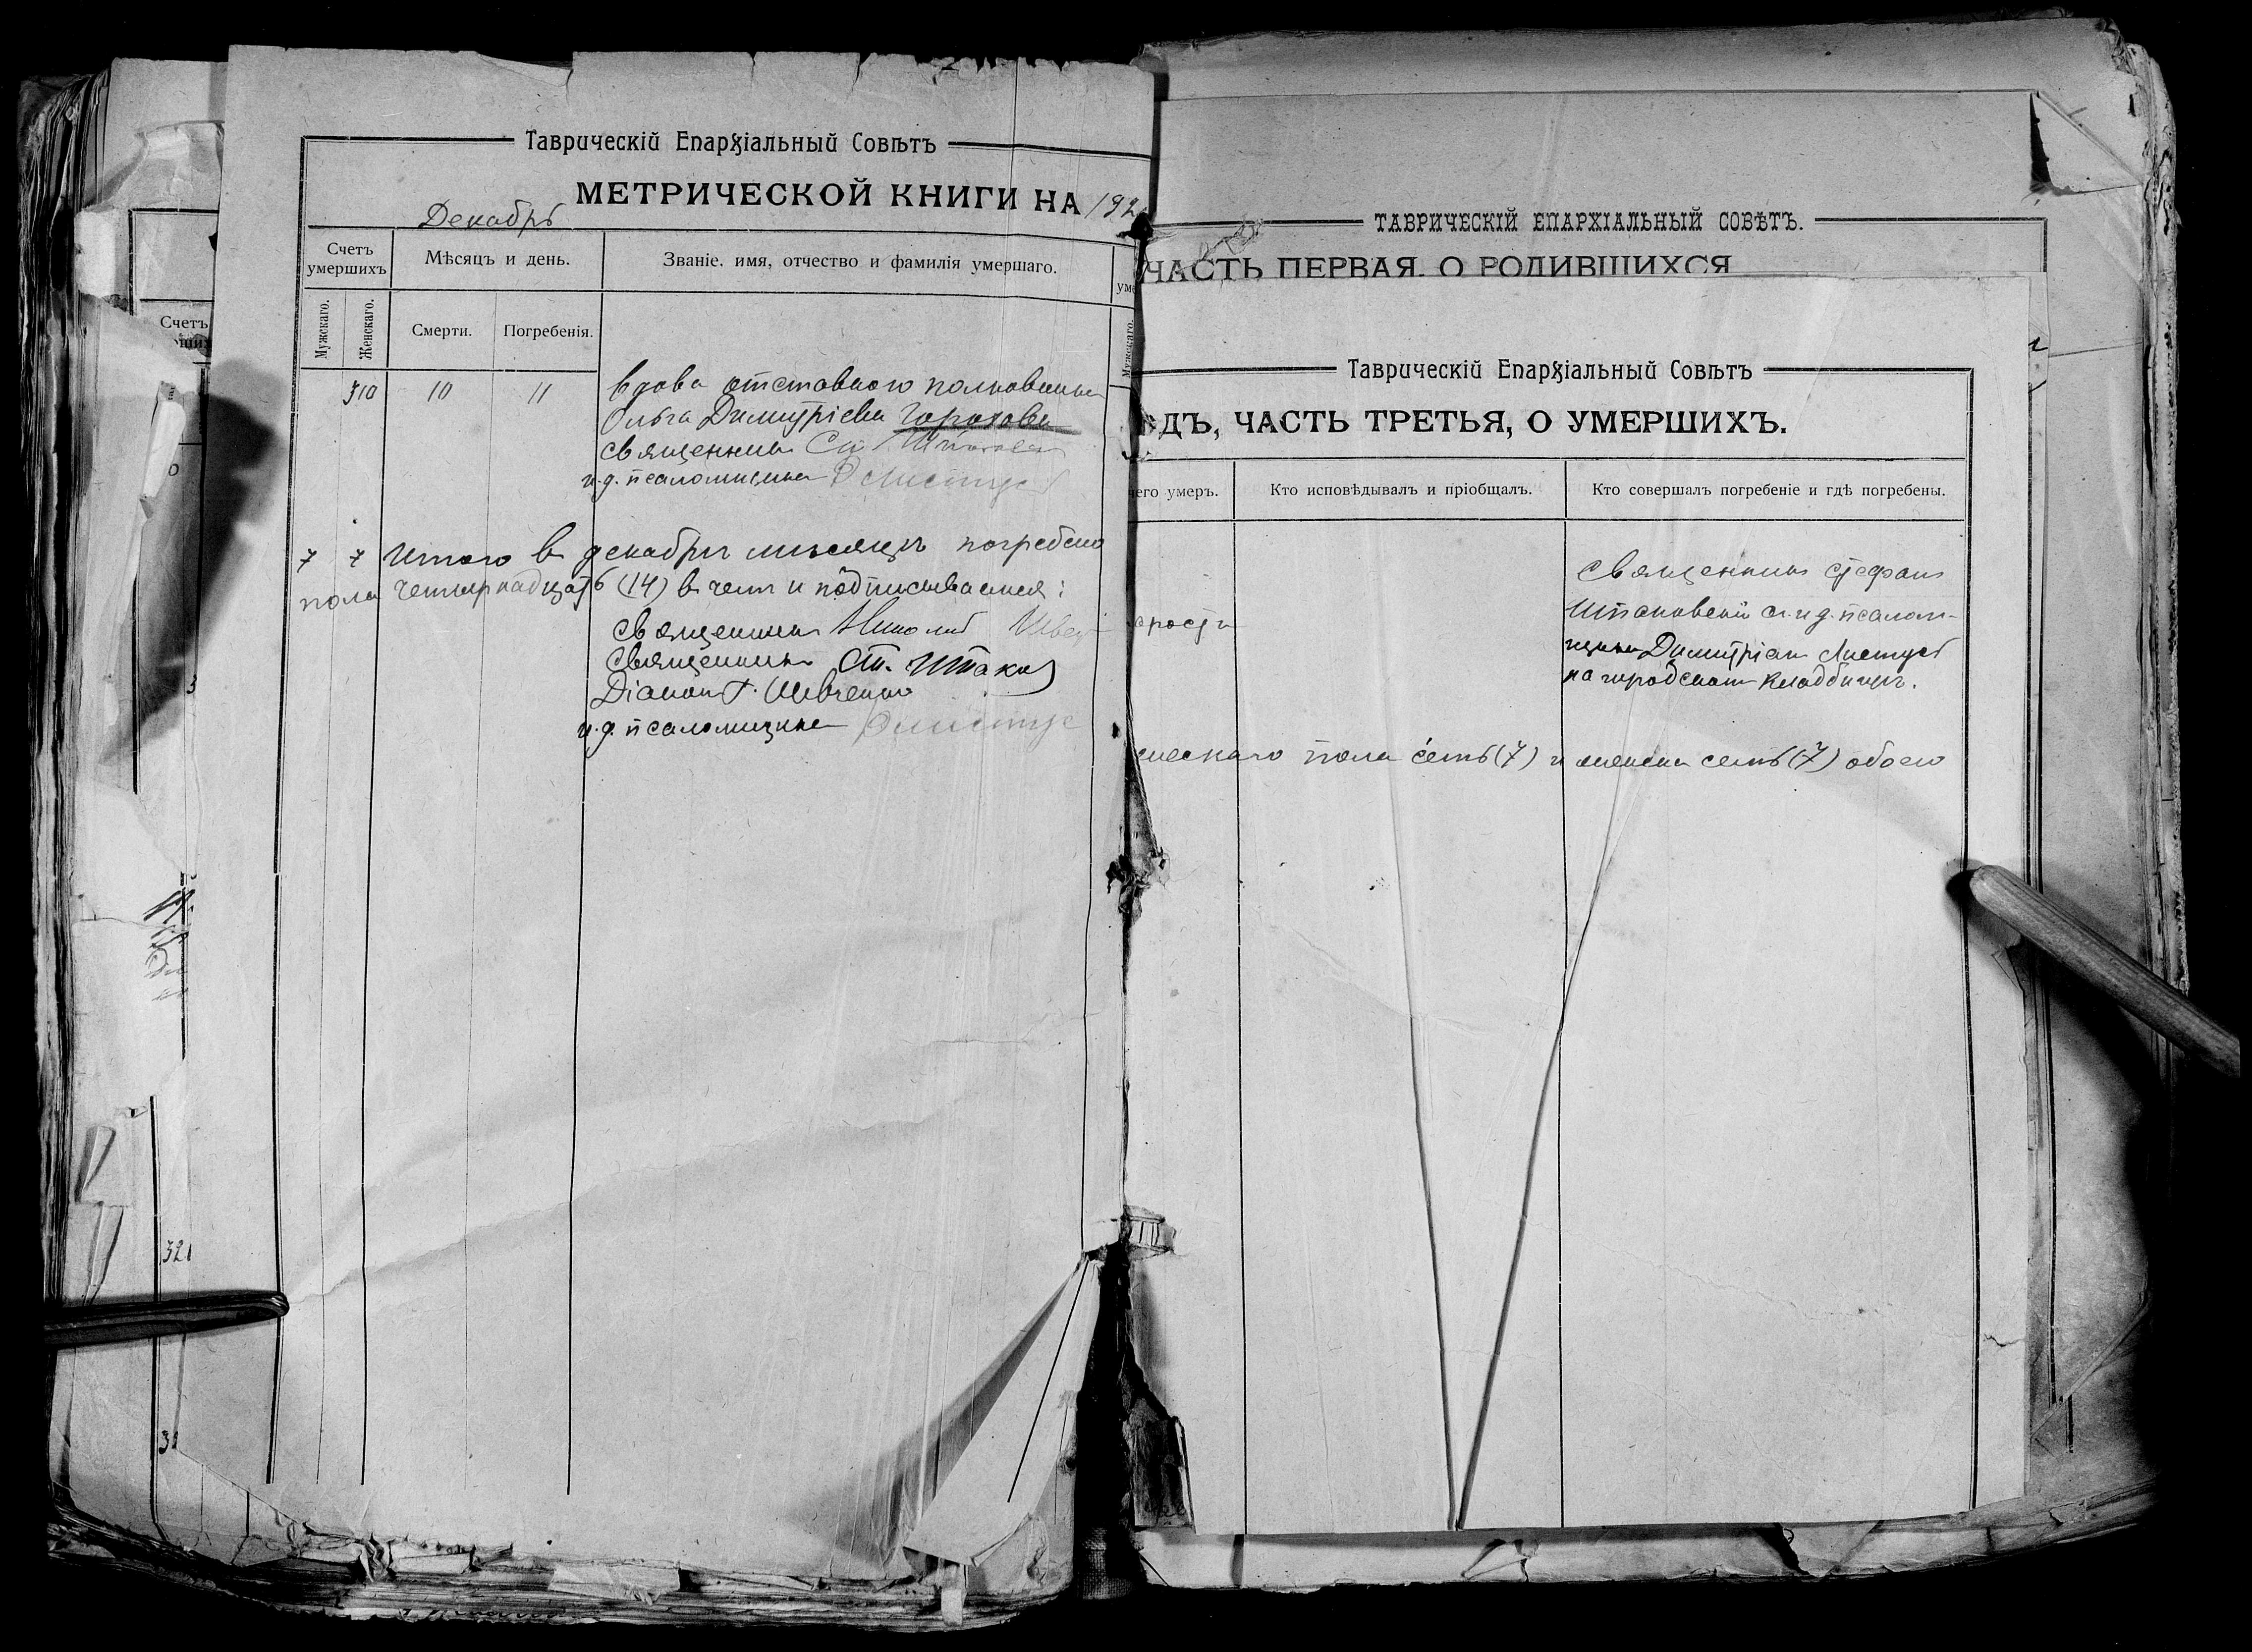 Таврическій Епархіальный Совѣтъ
МЕТРИЧЕСКОЙ КНИГИ НА 192
Декабрь
Счетъ умершихъ
Мѣсяцъ и день.
Званіе. имя, отчество и фамилія умершаго.
уме
Мужскаго.
Женскаго.
Смерти.
Погребенія.
Мужскаго.
310 10 11 Вдова отставного полковника
Ольга Димитріева Горохова
священникъ
и.д. псаломщика
7 7 Итого въ декабрѣ мѣсяцѣ погребено
пола четырнадцать (14) въ чемъ и подписываемся:
Священникъ Николай
Священникъ Ст.
Діаконъ Г. Шевченко
и.д. псаломщика
Счетъ
321
ТАВРИЧЕСКІЙ ЕПАРХІАЛЬНЫЙ СОВѢТЪ.
ЧАСТЬ ПЕРВАЯ. О РОДИВШИХСЯ
Таврическій Епархіальный Совѣтъ
ДЪ, ЧАСТЬ ТРЕТЬЯ, О УМЕРШИХЪ.
чего умеръ.
Кто исповѣдывалъ и пріобщалъ.
Кто совершалъ погребеніе и гдѣ погребены.
арости
Священникъ Стефанъ
Штаковскій съ и.д. псалом-
щика Димитріемъ
на городскомъ кладбищѣ.
ужескаго пола семь (7) и женска семь (7) обоего